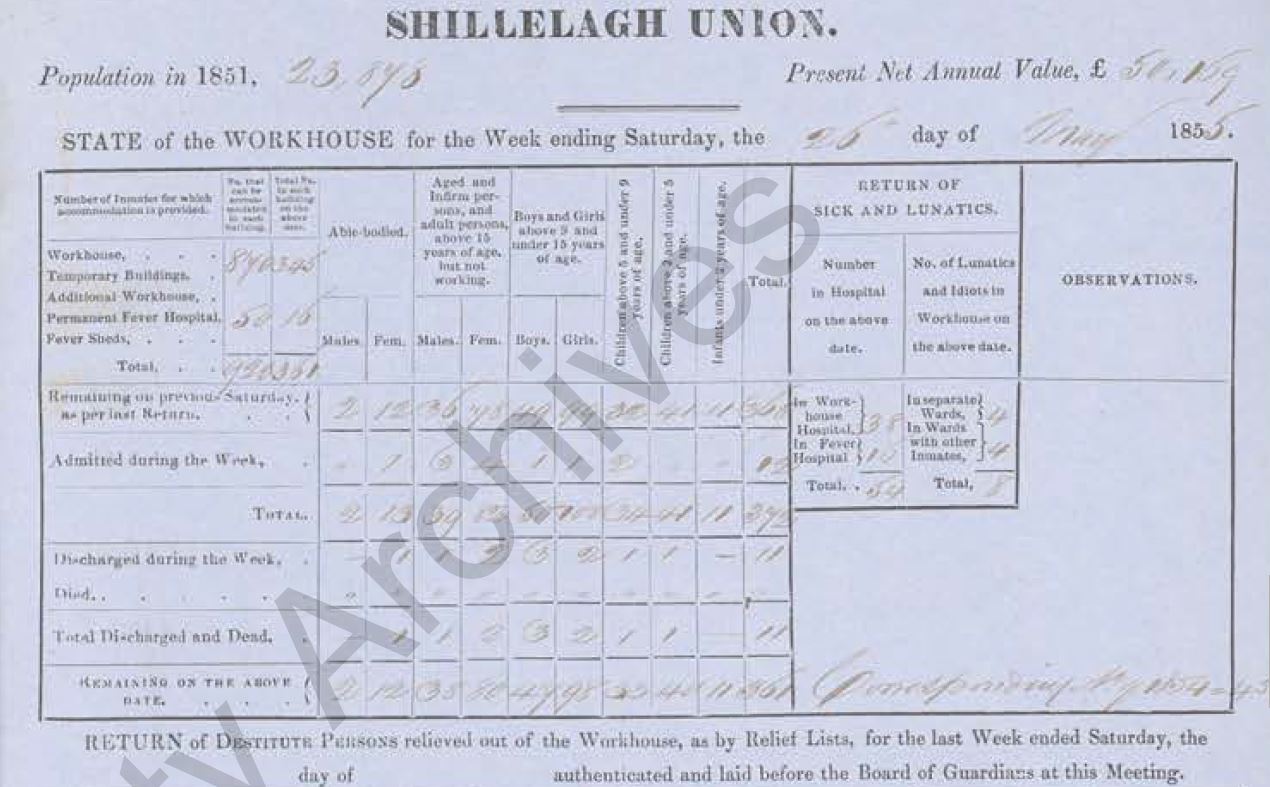 SHILLELAGH UNION.
Population in 1851, 23,898 Present Net Annual Value, £ 50,159
STATE of the WORKHOUSE for the Week ending Saturday, the 26 day of May 1855.
Number of Inmates for which accommodation is provided.
No. that can be accommodated in each building.
Total No. in each building on the above date.
Workhouse, . . . 870 345
Temporary Buildings, .
Additional Workhouse, .
Permanent Fever Hospital, 50 16
Fever Sheds, . . .
Total, . . 920 361
Able-bodied.
Males. Fem.
Aged and Infirm persons, and adult persons, above 15 years of age, but not working.
Males. Fem.
Boys and Girls above 9 and under 15 years of age.
Boys. Girls.
Children above 5 and under 9 years of age.
Children above 2 and under 5 years of age.
Infants under 2 years of age.
Total.
RETURN OF SICK AND LUNATICS.
Number in Hospital on the above date.
No. of Lunatics and Idiots in Workhouse on the above date.
OBSERVATIONS.
Remaining on previous Saturday, as per last Return, . . 2 12 36 78 49 32 41 11
In Workhouse Hospital, 38
In Fever Hospital
Total, . 54
In separate Wards, 4
In Wards with other Inmates, 4
Total, 8
Admitted during the Week, . - 1 3 4 1 - 2
TOTAL. 2 13 39 82 50 34 41 11 372
Discharged during the Week, . - 1 1 2 3 2 1 1 - 11
Died, . . . . . .
Total Discharged and Dead, . - 1 1 2 3 2 1 1 - 11
REMAINING ON THE ABOVE DATE. . . . 2 12 38 80 47 98 33 40 11 361 Corresponding
RETURN of DESTITUTE PERSONS relieved out of the Workhouse, as by Relief Lists, for the last Week ended Saturday, the
day of authenticated and laid before the Board of Guardians at this Meeting.
ty Archives